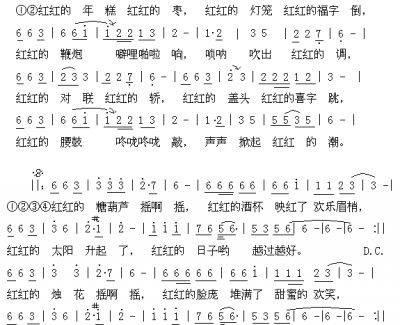 ①②红红的 年 糕 红红的 枣， 红红的 灯笼 红红的福字 倒，
6 6 3 | 6 6 i | i 2 2 1 3 | 2 - | 1·2 | 3 5 | 2 2 7 | 6 - |
红红的 鞭炮 噼哩啪啦 响， 唢呐 吹出 红红的 调，
6 6 3 | 2 3 3 | 2 2 7 | 6 - | 6 6 3 | 2 3 | 2 2 2 1 2 | 3 - |
红红的 对 联 红红的 轿， 红红的 盖头 红红的喜字 跳，
6 6 3 | 6 6 i | i 2 2 1 3 | 2 - | 1·2 | 3 5 | 5 5 3 5 | 6 - |
红红的 腰鼓 咚咙咚咙 敲， 声声 掀起 红红 的 潮。
||: 6 6 3 | 3 3 3 | 2·7 | 6 - | 6 6 6 6 6 | 6 6 i | 1 1 2 3 | 3 - |
①②③④红红的 糖葫芦 摇啊 摇， 红红的酒杯 映红了 欢乐眉梢，
6 6 3 | 3 6 | 2·1 | 2 - | i i i | 7 6 5 6 | 5 3 5 6 | 6 - | 6 - | 6 - :||
红红的 太阳 升起 了， 红红的 日子哟 越过越好。 D.C.
6 6 3 | 3 3 | 2·7 | 6 - | 6 6 6 6 6 | 6 i | 1 1 1 2 3 | 3 - |
红红的 烛 花 摇啊 摇， 红红的脸庞 堆满了 甜蜜的 欢笑，
6 6 3 | 3 6 | 2·1 | 2 - | i i i | 7 6 5 6 | 5 3 5 6 | 6 - | 6 - | 6 - :||